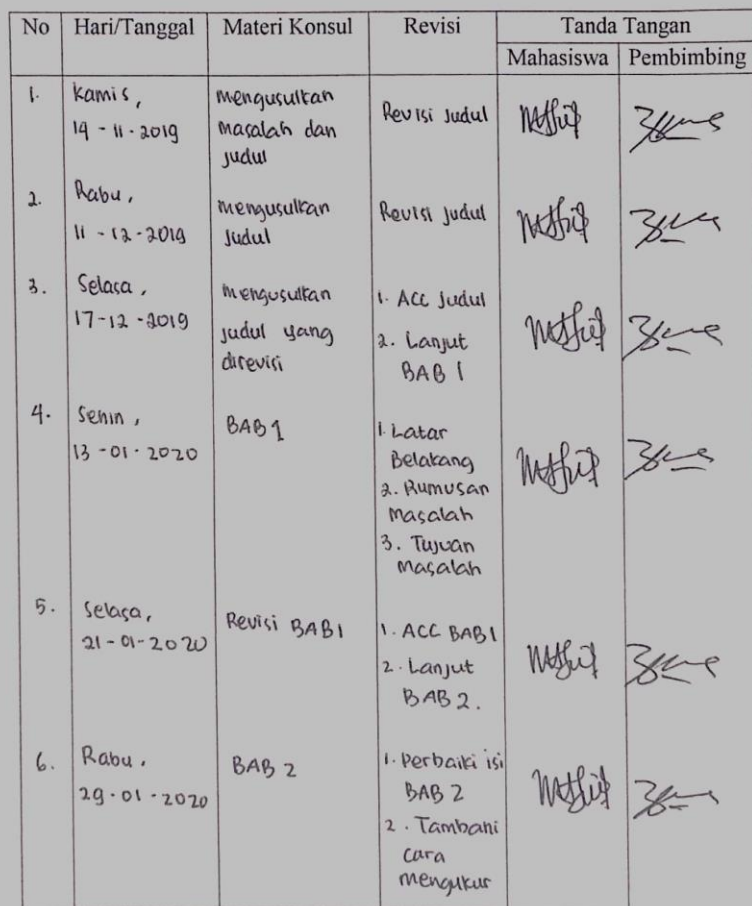 No Hari/Tanggal Materi Konsul Revisi Tanda Tangan
Mahasiswa Pembimbing
1. Kamis,
14 - 11 - 2019
mengusulkan
masalah dan
judul
Revisi Judul
2. Rabu,
11 - 12 - 2019
mengusulkan
Judul
Revisi Judul
3. Selasa,
17-12 -2019
mengusulkan
judul yang
direvisi
1. ACC Judul
2. Lanjut
BAB 1
4. Senin,
13 - 01 - 2020
BAB 1
1. Latar
Belakang
2. Rumusan
Masalah
3. Tujuan
Masalah
5. Selasa,
21 - 01 - 2020
Revisi BAB 1
1. ACC BAB 1
2. Lanjut
BAB 2.
6. Rabu.
29 - 01 - 2020
BAB 2
1. Perbaiki isi
BAB 2
2. Tambahi
cara
mengukur